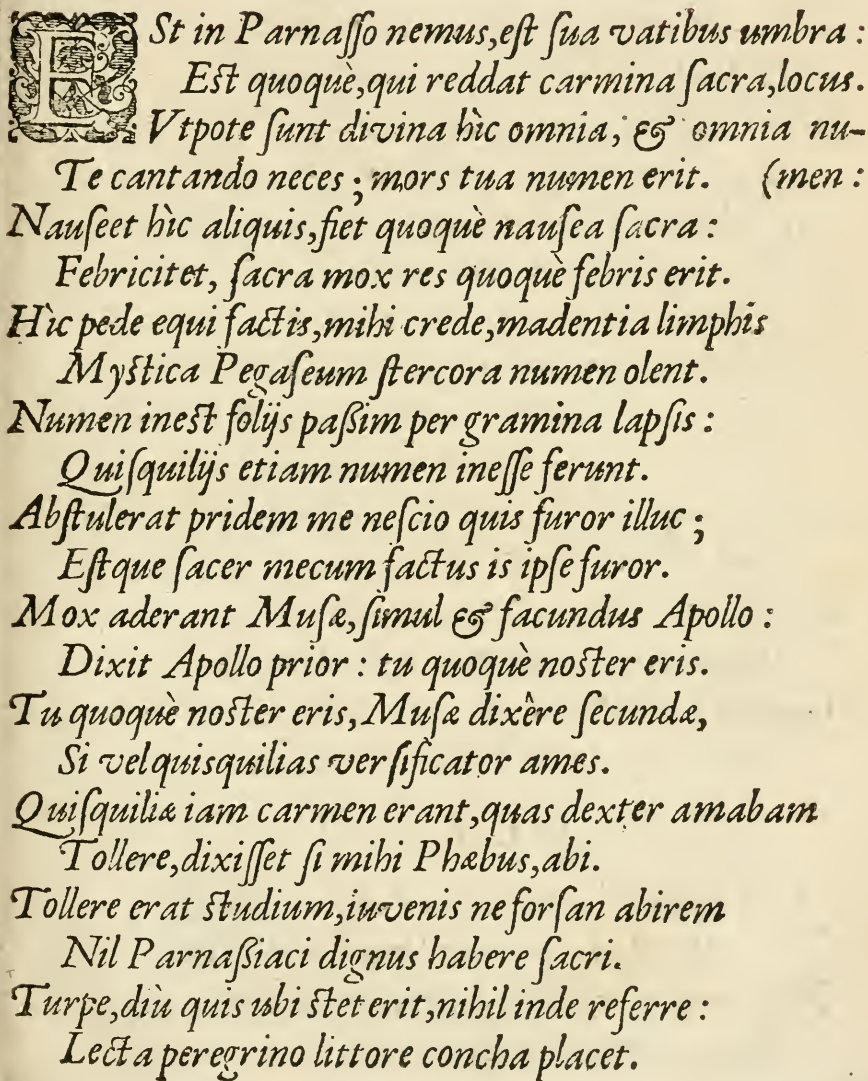 ESt in Parnasso nemus, est sua vatibus umbra :
Est quoquè, qui reddat carmina sacra, locus.
Vtpote sunt divina hìc omnia, & omnia nu-
Te cantando neces ; mors tua numen erit. (men :
Nauseet hìc aliquis, fiet quoquè nausea sacra :
Febricitet, sacra mox res quoquè febris erit.
Hìc pede equi factis, mihi crede, madentia limphis
Mystica Pegaseum stercora numen olent.
Numen inest folijs paßim per gramina lapsis :
Quisquilijs etiam numen inesse ferunt.
Abstulerat pridem me nescio quis furor illuc ;
Estque sacer mecum factus is ipse furor.
Mox aderant Musæ, simul & facundus Apollo :
Dixit Apollo prior : tu quoquè noster eris.
Tu quoquè noster eris, Musæ dixêre secundæ,
Si vel quisquilias versificator ames.
Quisquiliæ iam carmen erant, quas dexter amabam
Tollere, dixisset si mihi Phæbus, abi.
Tollere erat studium, iuvenis ne forsan abirem
Nil Parnaßiaci dignus habere sacri.
Turpe, diù quis ubi stet erit, nihil inde referre :
Lecta peregrino littore concha placet.